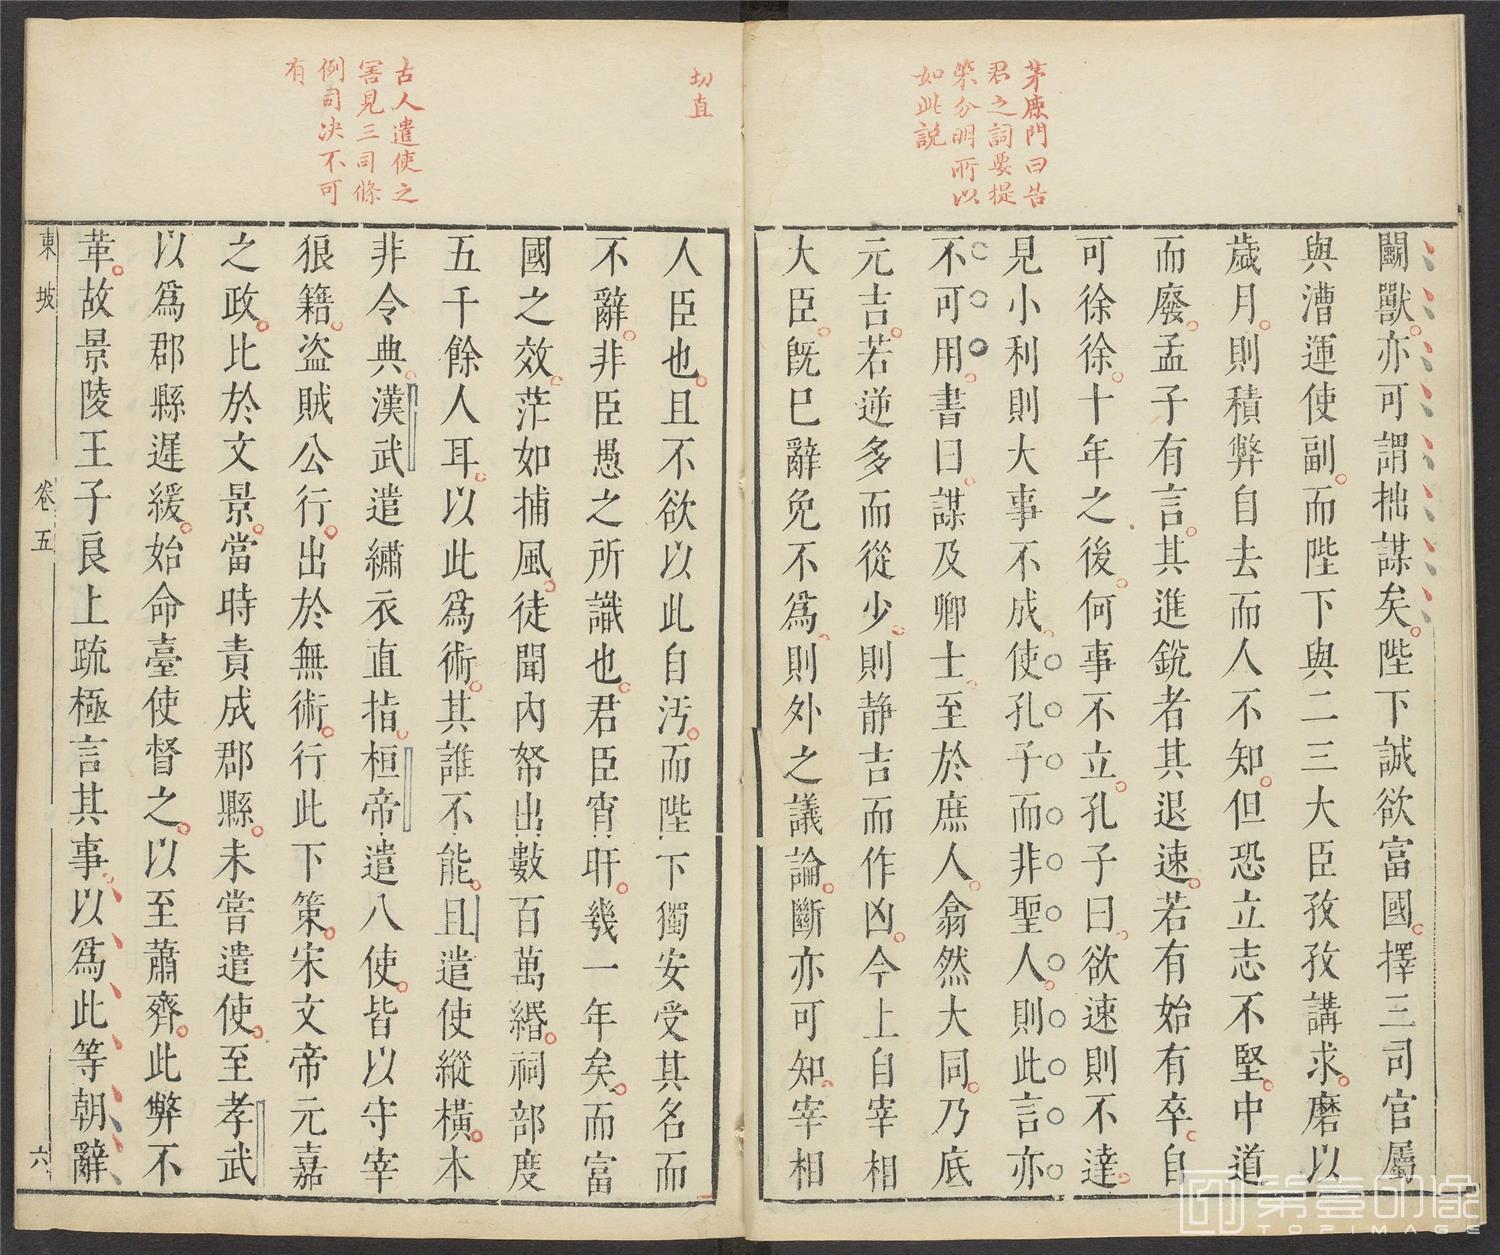 茅鹿門曰告
君之詞要提
築分明所以
如此說
闢獸亦可謂拙謀矣陛下誠欲富國擇三司官屬
與漕運使副而陛下與二三大臣孜孜講求磨以
歲月則積弊自去而人不知但恐立志不堅中道
而廢孟子有言其進銳者其退速若有始有卒自
可徐徐十年之後何事不立孔子曰欲速則不達
見小利則大事不成使孔子而非聖人則此言亦
不可用書曰謀及卿士至於庶人翕然大同乃底
元吉若逆多而從少則靜吉而作凶今上自宰相
大臣既已辭免不爲則外之議論斷亦可知宰相
切直
古人遣使之
害見三司條
例司決不可
有
人臣也且不欲以此自汚而陛下獨安受其名而
不辭非臣愚之所識也君臣宵旰幾一年矣而富
國之效茫如捕風徒聞內帑出數百萬緡祠部度
五千餘人耳以此爲術其誰不能且遣使縱橫本
非令典漢武遣繡衣直指桓帝遣八使皆以守宰
狼籍盜賊公行出於無術行此下策宋文帝元嘉
之政比於文景當時責成郡縣未嘗遣使至孝武
以爲郡縣遲緩始命臺使督之以至蕭齊此弊不
革故景陵王子良上疏極言其事以爲此等朝辭
東坡 卷五 六
第壹印像
TOPIMAGE